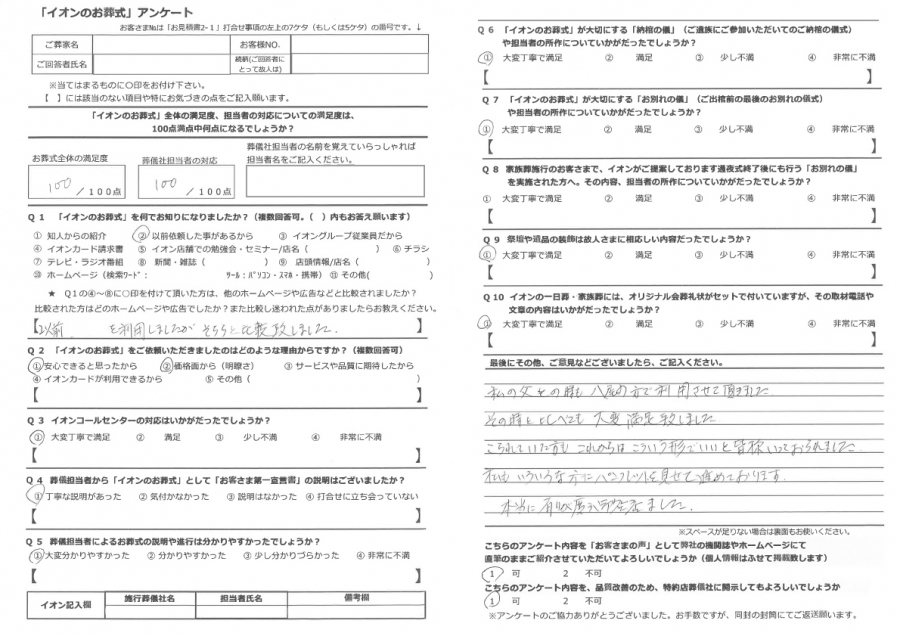 「イオンのお葬式」アンケート
お客さま№は「お見積書2-1」打合せ事項の左上の7ケタ（もしくは5ケタ）の番号です。↓
ご葬家名 お客様NO.
ご回答者氏名 続柄(ご回答者にとって故人は)
※当てはまるものに○印をお付け下さい。
【　】には該当のない項目や特にお気づきの点をご記入願います。
「イオンのお葬式」全体の満足度、担当者の対応についての満足度は、
100点満点中何点になるでしょうか？
お葬式全体の満足度 葬儀社担当者の対応 葬儀社担当者の名前を覚えていらっしゃれば
担当者名をご記入ください。
100 ／100点 100 ／100点
Q 1 「イオンのお葬式」を何でお知りになりましたか？（複数回答可。（ ）内もお答え願います）
① 知人からの紹介 ② 以前依頼した事があるから ③ イオングループ従業員だから
④ イオンカード請求書 ⑤ イオン店舗での勉強会・セミナー/店名（ ） ⑥ チラシ
⑦ テレビ・ラジオ番組 ⑧ 新聞・雑誌（ ） ⑨ 店頭情報/店名（ ）
⑩ ホームページ（検索ﾜｰﾄﾞ： ﾂｰﾙ：ﾊﾟｿｺﾝ・ｽﾏﾎ・携帯） ⑪ その他( )
★ Q１の④～⑧に○印を付けて頂いた方は、他のホームページや広告などと比較されましたか？
比較された方はどのホームページや広告でしたか？また比較し迷われた点がありましたらお教えください
【以前 を利用しましたが そちらと比較致しました. 】
Q 2 「イオンのお葬式」をご依頼いただきましたのはどのような理由からですか？（複数回答可）
① 安心できると思ったから ② 価格面から（明瞭さ） ③ サービスや品質に期待したから
④ イオンカードが利用できるから ⑤ その他（ ）
【 】
Q 3 イオンコールセンターの対応はいかがだったでしょうか？
① 大変丁寧で満足 ② 満足 ③ 少し不満 ④ 非常に不満
【 】
Q 4 葬儀担当者から「イオンのお葬式」として「お客さま第一宣言書」の説明はございましたか？
① 丁寧な説明があった ② 気付かなかった ③ 説明はなかった ④ 打合せに立ち会っていない
【 】
Q 5 葬儀担当者によるお葬式の説明や進行は分かりやすかったでしょうか？
① 大変分かりやすかった ② 分かりやすかった ③ 少し分かりづらかった ④ 非常に不満
【 】
イオン記入欄 施行葬儀社名 担当者氏名 備考欄
Q 6 「イオンのお葬式」が大切にする「納棺の儀」（ご遺族にご参加いただいてのご納棺の儀式）
や担当者の所作についていかがだったでしょうか？
① 大変丁寧で満足 ② 満足 ③ 少し不満 ④ 非常に不満
【 】
Q 7 「イオンのお葬式」が大切にする「お別れの儀」（ご出棺前の最後のお別れの儀式）
や担当者の所作についていかがだったでしょうか？
① 大変丁寧で満足 ② 満足 ③ 少し不満 ④ 非常に不満
【 】
Q 8 家族葬施行のお客さまで、イオンがご提案しております通夜式終了後にも行う「お別れの儀」
を実施された方へ。その内容、担当者の所作についていかがだったでしょうか？
① 大変丁寧で満足 ② 満足 ③ 少し不満 ④ 非常に不満
【 】
Q 9 祭壇や遺品の装飾は故人さまに相応しい内容だったでしょうか？
① 大変丁寧で満足 ② 満足 ③ 少し不満 ④ 非常に不満
【 】
Q 10 イオンの一日葬・家族葬には、オリジナル会葬礼状がセットで付いていますが、その取材電話や
文章の内容はいかがだったでしょうか？
① 大変丁寧で満足 ② 満足 ③ 少し不満 ④ 非常に不満
【 】
最後にその他、ご意見などございましたら、ご記入ください。
私の父 の時も 八尾の方で利用させて頂きました
その時と比べても 大変満足致しました
こられていた方も これからは こういう形でいいと皆様いっておられました.
私も いろいろな方に パンフレットを見せて進めております.
本当に有り難う御座居ました.
※スペースが足りない場合は裏面もお使いください。
こちらのアンケート内容を「お客さまの声」として弊社の機関誌やホームページにて
直筆のままご紹介させていただいてよろしいでしょうか（個人情報はふせて掲載致します）
1 可 2 不可
こちらのアンケート内容を、品質改善のため、特約店葬儀社に開示してもよろしいでしょうか
1 可 2 不可
※アンケートのご協力ありがとうございました。お手数ですが、同封の封筒にてご返送願います。